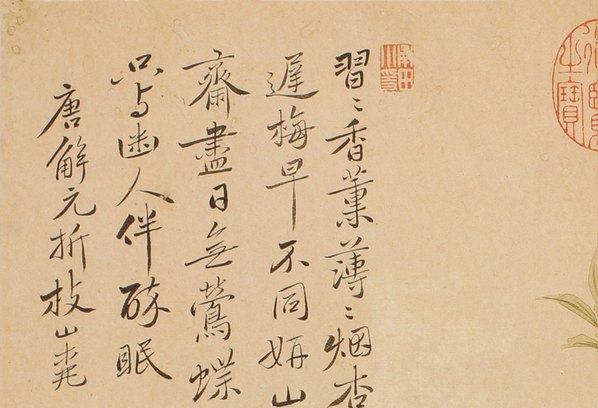 習〻香薰薄〻烟杏
遲梅早不同妍山
齋盡日無鶯蝶
只与幽人伴醉眠
唐解元折枝山桃